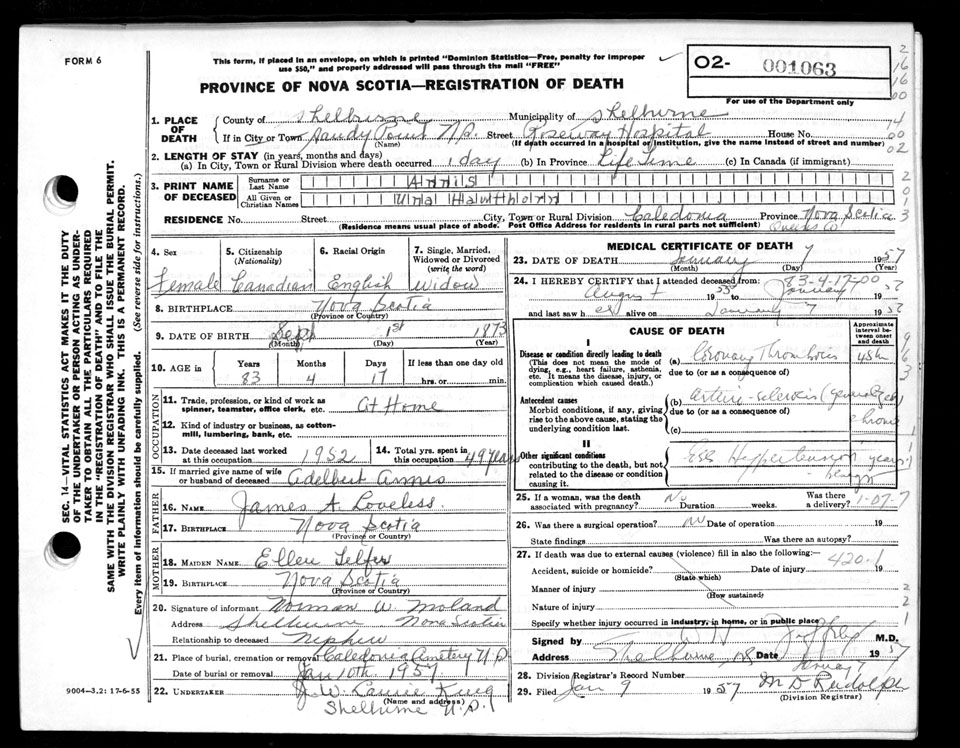 FORM 6
This form, if placed in an envelope, on which is printed "Dominion Statistics—Free, penalty for improper
use $50," and properly addressed will pass through the mail "FREE"
PROVINCE OF NOVA SCOTIA—REGISTRATION OF DEATH
O2- 001063
For use of the Department only
1. PLACE OF DEATH
County of Shelburne Municipality of Shelburne
If in City or Town Sandy Point N.S. Street Roseway Hospital House No.
(Name) (If death occurred in a hospital or institution, give the name instead of street and number)
2. LENGTH OF STAY (in years, months and days)
(a) In City, Town or Rural Division where death occurred 1 day (b) In Province Life Time (c) In Canada (if immigrant)
3. PRINT NAME OF DECEASED
Surname or Last Name Annis
All Given or Christian Names Una Hawthorn
RESIDENCE No. Street City, Town or Rural Division Caledonia Province Nova Scotia
(Residence means usual place of abode. Post Office Address for residents in rural parts not sufficient) Queens Co
4. Sex Female
5. Citizenship (Nationality) Canadian
6. Racial Origin English
7. Single, Married, Widowed or Divorced (write the word) Widow
8. BIRTHPLACE Nova Scotia
(Province or Country)
9. DATE OF BIRTH Sept 1st 1873
(Month) (Day) (Year)
10. AGE in Years 83 Months 4 Days 17 If less than one day old hrs. or min.
OCCUPATION
11. Trade, profession, or kind of work as spinner, teamster, office clerk, etc. At Home
12. Kind of industry or business, as cotton-mill, lumbering, bank, etc.
13. Date deceased last worked at this occupation 1952
14. Total yrs. spent in this occupation 49 years
15. If married give name of wife or husband of deceased Adelbert Annis
FATHER
16. NAME James A. Loveless
17. BIRTHPLACE Nova Scotia
(Province or Country)
MOTHER
18. MAIDEN NAME Ellen Telfer
19. BIRTHPLACE Nova Scotia
(Province or Country)
20. Signature of informant Norman W. Moland
Address Shelburne Nova Scotia
Relationship to deceased Nephew
21. Place of burial, cremation or removal Caledonia Cemetery N.S.
Date of burial or removal Jan 10th 1957
22. UNDERTAKER
(Name and address)
Shelburne N.S.
9004-3.2: 17-6-55
SEC. 14—VITAL STATISTICS ACT MAKES IT THE DUTY
OF THE UNDERTAKER OR PERSON ACTING AS UNDER-
TAKER TO OBTAIN ALL THE PARTICULARS REQUIRED
IN THE "REGISTRATION OF DEATH" AND TO FILE THE
SAME WITH THE DIVISION REGISTRAR WHO SHALL ISSUE THE BURIAL PERMIT.
WRITE PLAINLY WITH UNFADING INK. THIS IS A PERMANENT RECORD.
Every item of information should be carefully supplied. (See reverse side for instructions.)
MEDICAL CERTIFICATE OF DEATH
23. DATE OF DEATH January 7 1957
(Month) (Day) (Year)
83-4-17-200
24. I HEREBY CERTIFY that I attended deceased from:
August 1955 to January 1957
and last saw her alive on January 7 1957
CAUSE OF DEATH
Approximate interval between onset and death
I
Disease or condition directly leading to death
(This does not mean the mode of dying, e.g., heart failure, asthenia, etc. It means the disease, injury, or complication which caused death.)
(a) Coronary Thrombosis
due to (or as a consequence of)
Antecedent causes
Morbid conditions, if any, giving rise to the above cause, stating the underlying condition last.
(b) Arterio-sclerosis chronic
due to (or as a consequence of)
(c)
II
Other significant conditions
contributing to the death, but not related to the disease or condition causing it.
years
25. If a woman, was the death associated with pregnancy? No Duration weeks. Was there a delivery?
1-07-7
26. Was there a surgical operation? No Date of operation 19
State findings Was there an autopsy?
27. If death was due to external causes (violence) fill in also the following:—
420-1
Accident, suicide or homicide? Date of injury 19
(State which)
Manner of injury
(How sustained)
Nature of injury
Specify whether injury occurred in industry, in home, or in public place
Signed by M.D.
Address Shelburne, NS Date January 7 1957
28. Division Registrar's Record Number
29. Filed Jan 9 1957 M D Rudolph
(Division Registrar)